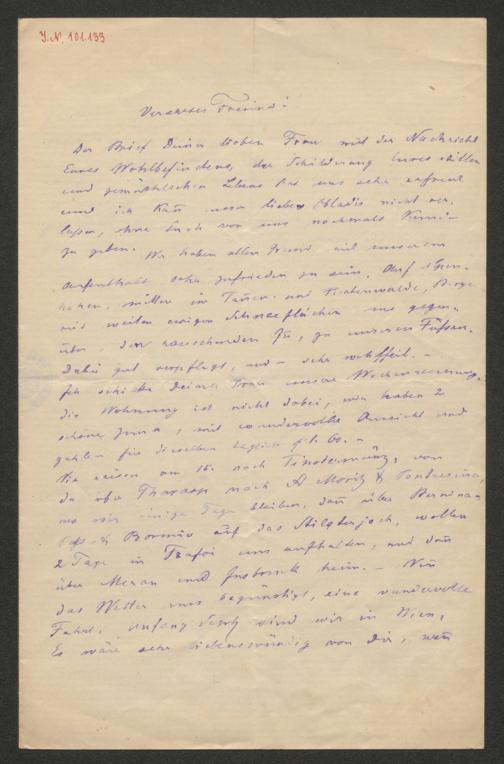 J. N. 101.133
Verehrter Freund!
Der Brief Deiner lieben Frau mit der Nachricht
Eures Wohlbefindens, der Schilderung Eures stillen
und gemüthlichen Lebens hat uns sehr erfreut
und ich kañ unser liebes Obladis nicht ver-
lassen, ohne Euch von uns nochmals Kunde
zu geben. Wir haben allen Grund mit unserem
Aufenthalt sehr zufrieden zu sein, auf
mitten im Tañen- und Wiesen, Berge
mit weiten ewigen Schneeflächen uns gegen-
über, den rauschenden Iñ, zu unseren Füssen.
Dabei gut verpflegt, und – sehr wohlfeil. –
Ich schicke Deiner Frau unsere Wochenrechnung,
die Wohnung ist nicht dabei, wir haben 2
schöne Zimer, mit wundervoller Aussicht und
zahlen für dieselben täglich
Wir reisen am 15. nach Finstermünz, von
da über Tarasp nach St Moritz & Pontresina,
wo wir einige Tage bleiben, dañ über Bernina
& Bormio auf das Stilfserjoch, wollen
2 Tage in Trafoi uns aufhalten, und dañ
über Meran und Innsbruck heim. – Weñ
das Wetter uns begünstigt, eine wundervolle
Fahrt. Anfang Septb sind wir in Wien.
Es wäre sehr liebenswürdig von Dir, weñ